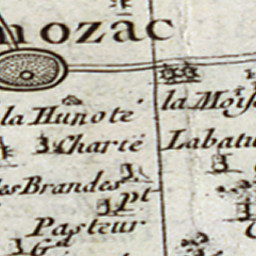 mozac
la Hunote
la Mois
Charte
Labatu
es Brandes
Pt
Pasteur
Gd